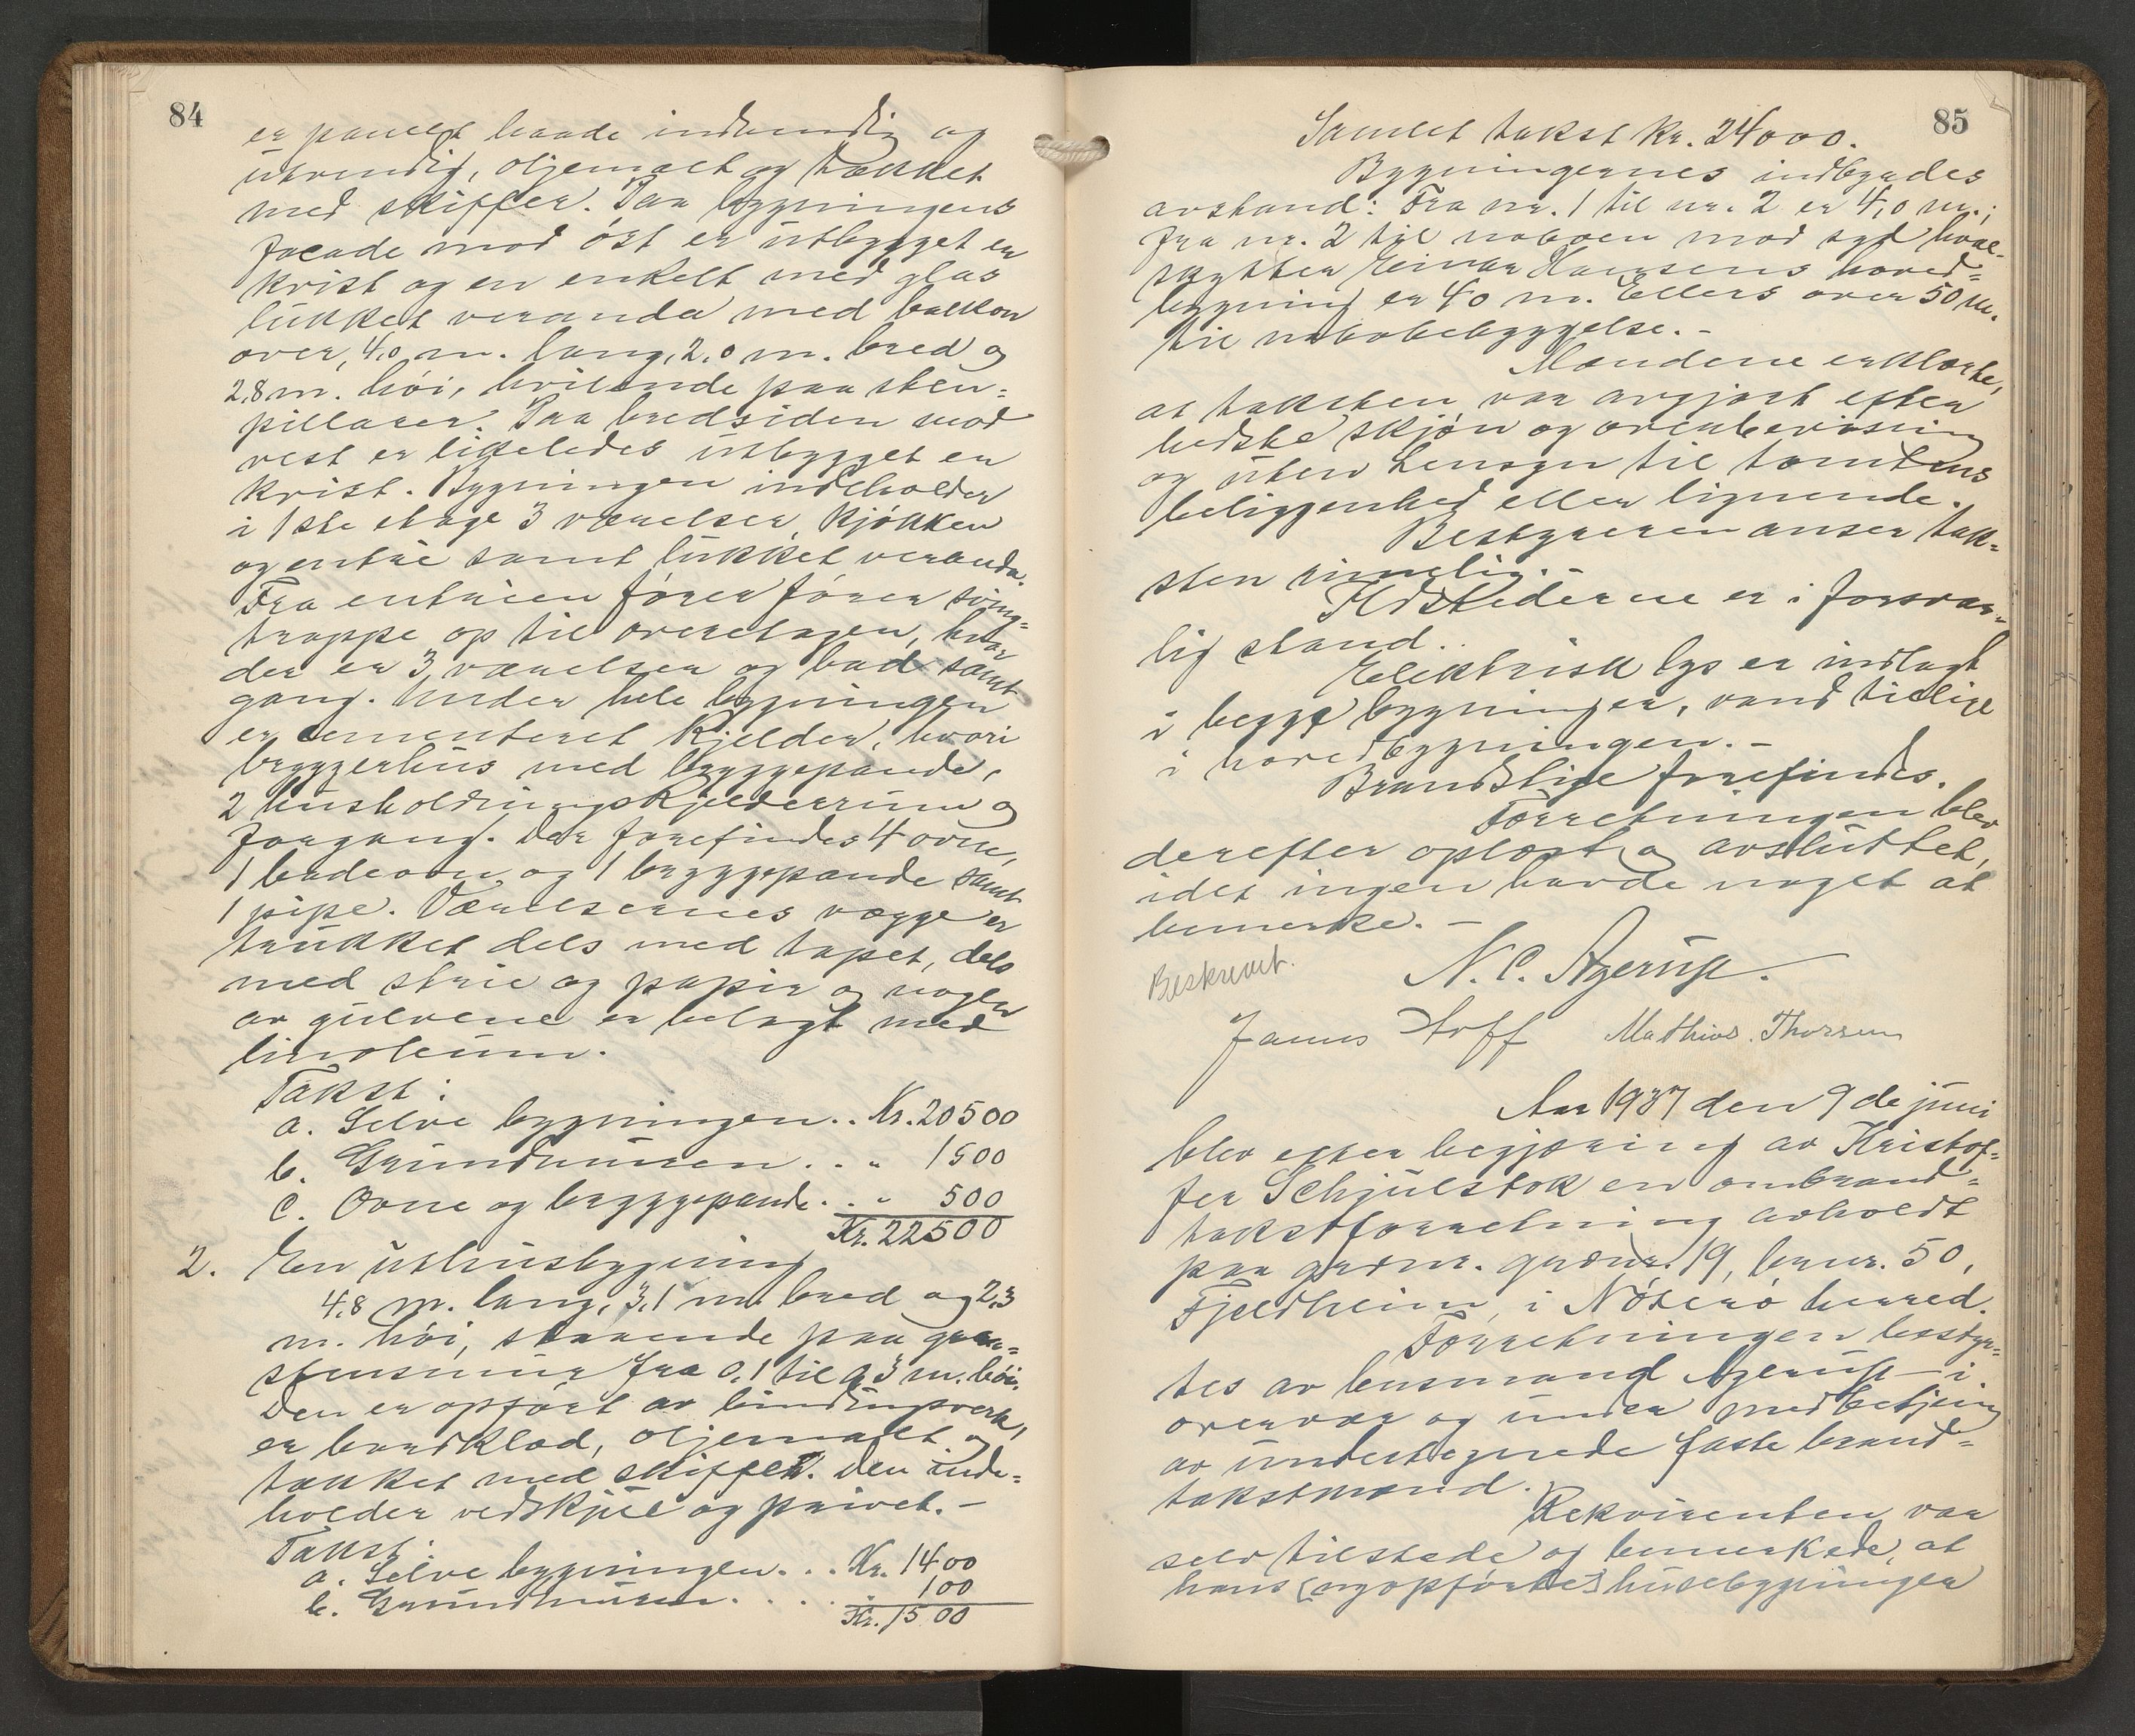 84
er panelt baade indvendig og
utvendig, oljemalt og tækket
med skiffer. Paa bygningens
facade mod öst er utbygget en
krist og en enkelt med glas
lukket veranda med balkon
over, 4,0 m. lang, 2,0 m. bred og
2,8 m. höi, hvilende paa sten=
pillarer. Paa bredsiden mod
vest er likeledes utbygget en
krist. Bygningen indeholder
i 1ste etage 3 værelser, kjökken
og entré samt lukket veranda.
Fra entréen förer förer sving=
trappe op til overetagen, hvor
der er 3 værelser og bad samt
gang. Under hele bygningen
er cementeret kjelder, hvori
bryggerhus med bryggepande,
2 husholdningskjelderrum og
forgang. Der forefindes 4 ovne,
1 badeovn og 1 bryggepande samt
1 pipe. Værelsernes vægge er
trukket dels med tapet, dels
med strie og papir og nogen
av gulvene er belagt med
linoleum.
Takst:
a. Selve bygningen .. Kr. 20500
b. Grundmuren . . " 1500
c. Ovne og bryggepande . . " 500
Kr. 22500
2. En uthusbygning
4,8 m. lang, 3,1 m. bred og 2,3
m. höi, staaende paa graa=
stensmur fra 0,1 til 0,3 m. höi.
Den er opfört av bindingsverk,
er bordklæd, oljemalt og
tækket med skiffer. Den inde=
holder vedskjul og privet. -
Takst:
a. Selve bygningen . . . Kr. 1400
b. Grundmuren . . . . " 100
Kr. 1500
85
Samlet takst kr. 24000.
Bygningernes indbyrdes
avstand: Fra nr. 1 til nr. 2 er 4,0 m.;
fra nr. 2 til naboen mod syd hval=
skytter Einar Hansens hoved=
bygning er 40 m. Ellers over 50 m.
til nabobebyggelse. -
Mændene erklærte,
at taksten var avgjort efter
bedste skjön og overbevisning
og uten hensyn til tomtens
beliggenhed eller lignende.
Bestyreren anser tak=
sten rimelig. -
Ildstederne er i forsvar=
lig stand. .
Elektrisk lys er indlagt
i begge bygninger, vand tillike
i hovedbygningen. -
Brandstige forefindes.
Forretningen blev
derefter oplæst og avsluttet,
idet ingen havde noget at
bemerke. -
Beskrevet.
N. C. Agerup.
James Hoff Mathias Thorsen
Aar 1937 den 9de juni
blev efter begjæring av Kristof=
fer Schjulstok en ombrand=
takstforretning avholdt
paa gaardnr. gradnr. 19, brnr. 50,
Fjeldheim, i Nöterö herred.
Forretningen bestyr=
tes av lensmand Agerup i
overvær og under medbetjening
av undertegnede faste brand=
takstmænd.
Rekvirenten var
selv tilstede og bemerkede, at
hans (nyopförte) husebygninger